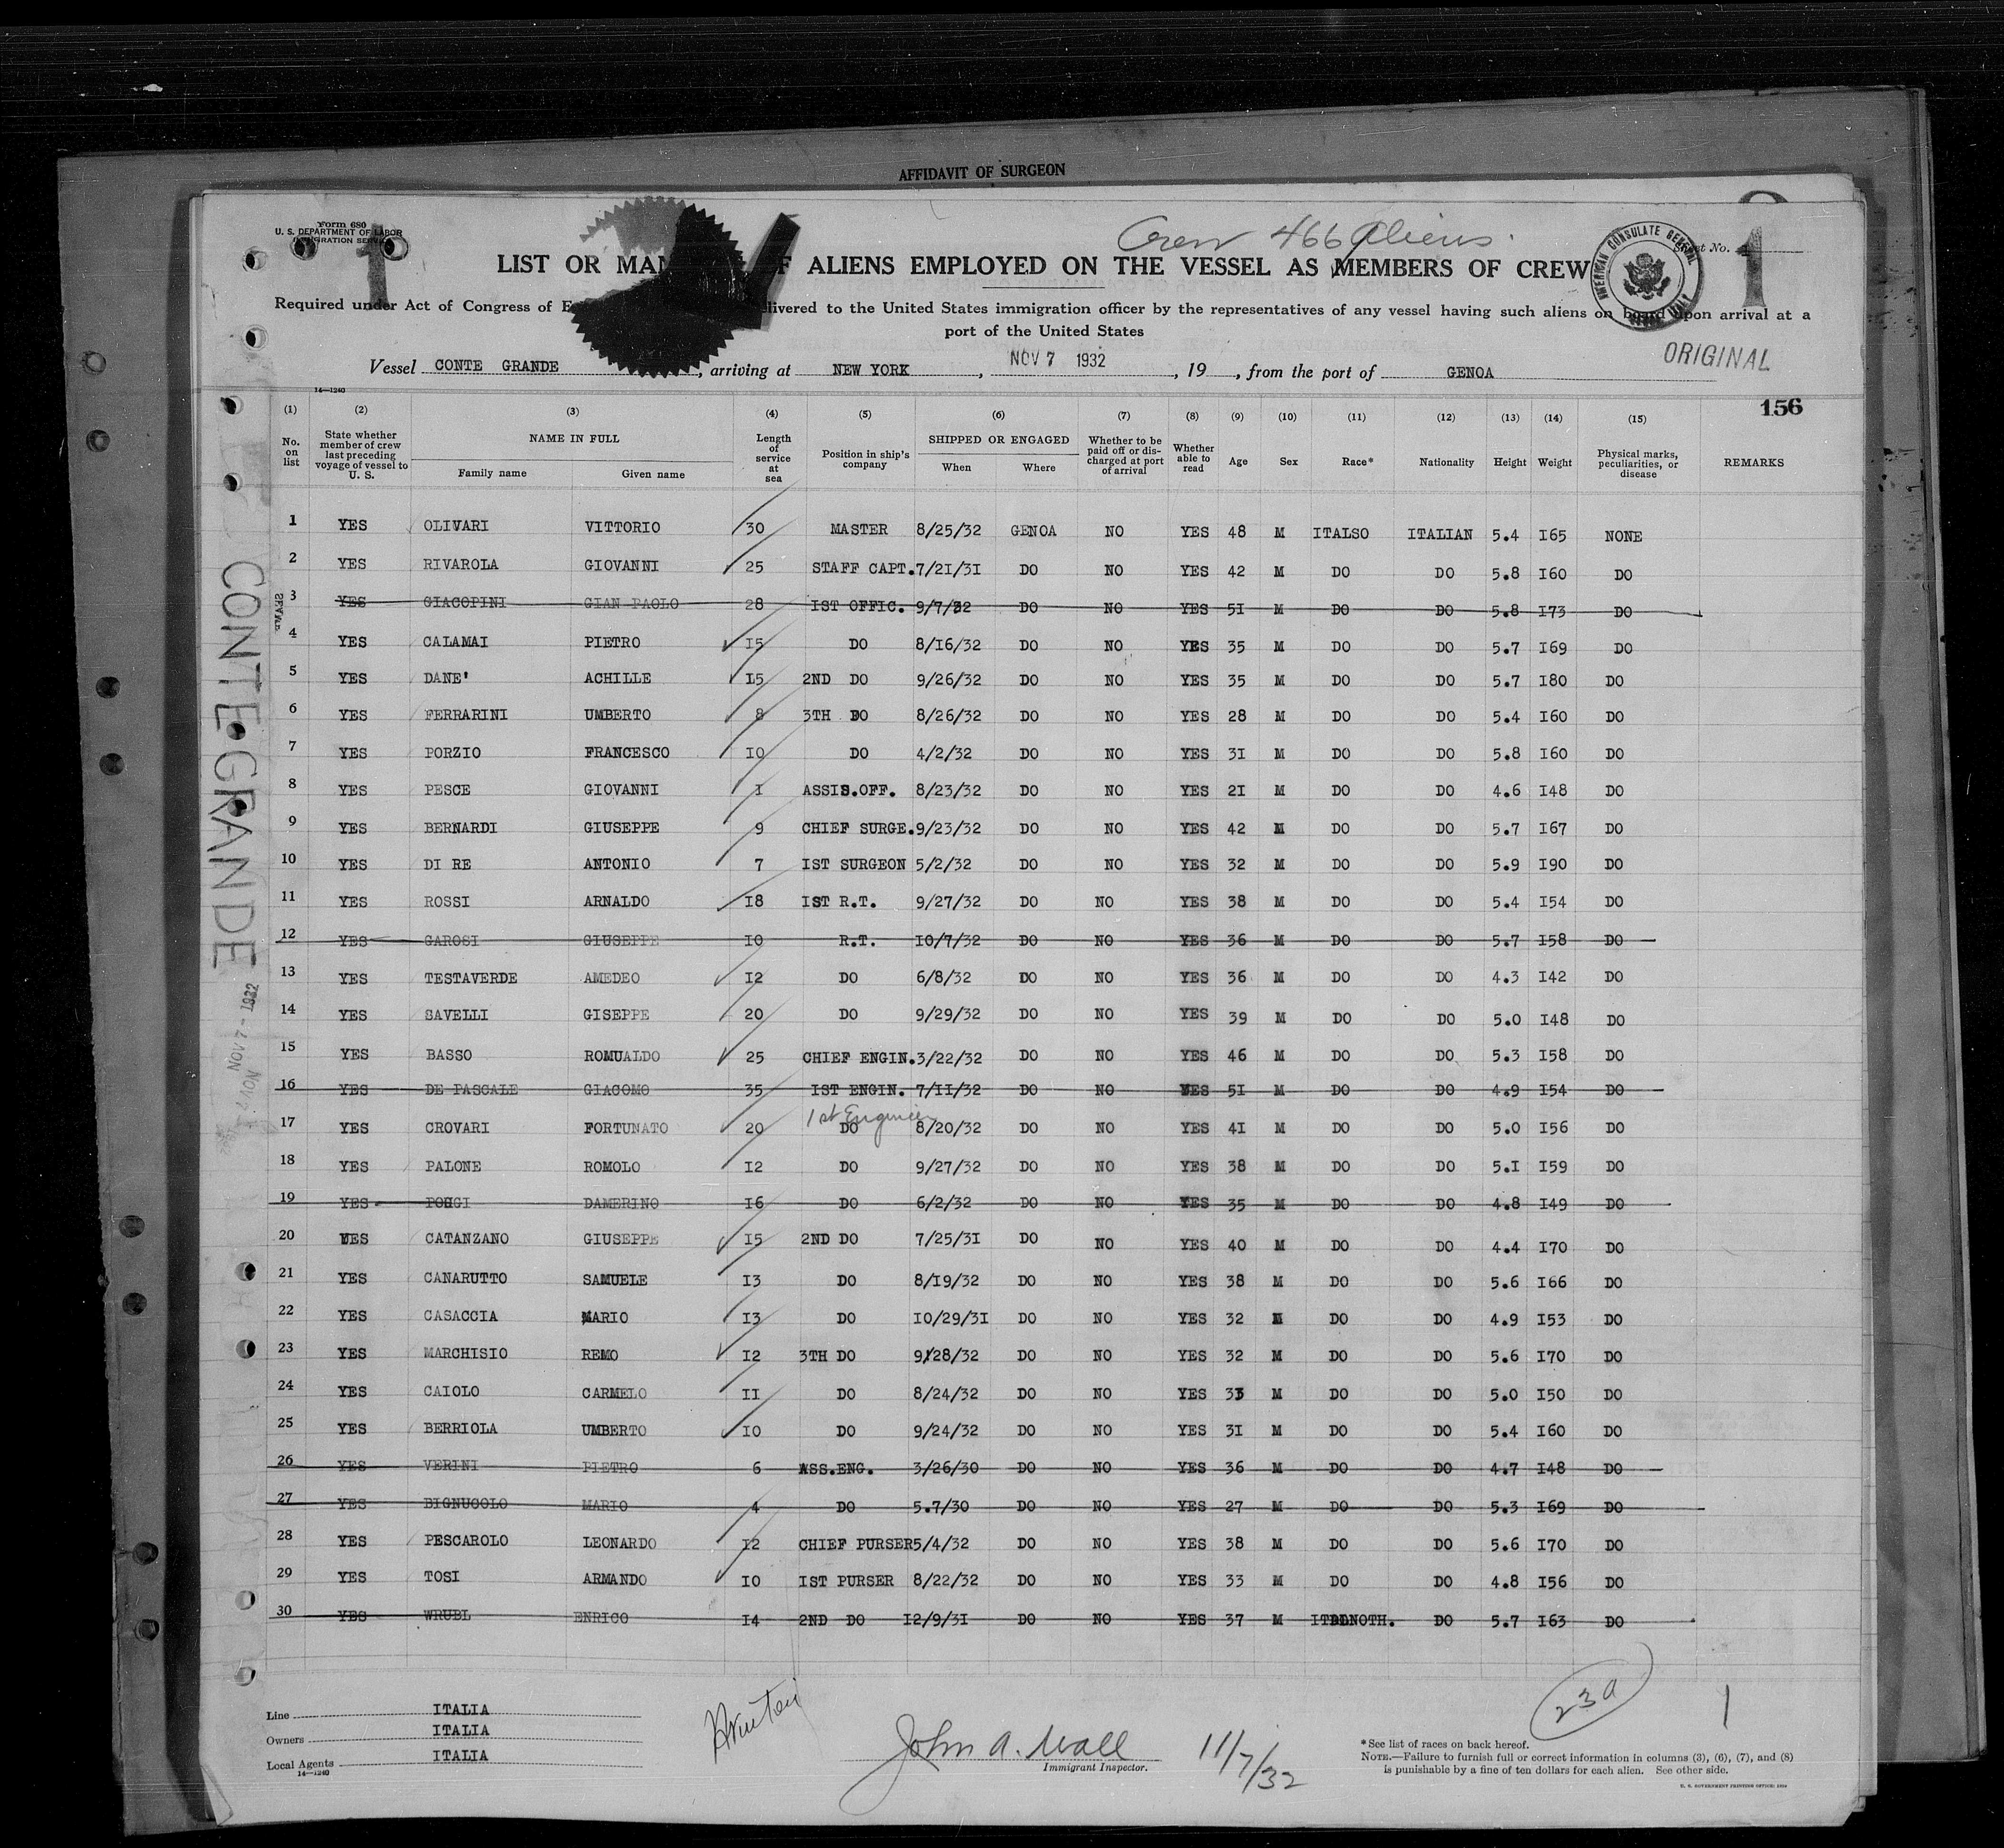 AFFIDAVIT OF SURGEON
Form 680
U. S. DEPARTMENT OF LABOR
IMMIGRATION SERVICE
1
Crew 466 Aliens.
Sheet No. 1
AMERICAN CONSULATE GENERAL
LIST OR MAN OF ALIENS EMPLOYED ON THE VESSEL AS MEMBERS OF CREW
Required under Act of Congress of livered to the United States immigration officer by the representatives of any vessel having such aliens on board upon arrival at a
port of the United States
ORIGINAL
Vessel CONTE GRANDE , arriving at NEW YORK , NOV 7 1932 , 19 , from the port of GENOA
14—1240
156
(1) (2) (3) (4) (5) (6) (7) (8) (9) (10) (11) (12) (13) (14) (15)
No. on list State whether member of crew last preceding voyage of vessel to U. S. NAME IN FULL Family name Given name Length of service at sea Position in ship's company SHIPPED OR ENGAGED When Where Whether to be paid off or discharged at port of arrival Whether able to read Age Sex Race* Nationality Height Weight Physical marks, peculiarities, or disease REMARKS
1 YES OLIVARI VITTORIO 30 MASTER 8/25/32 GENOA NO YES 48 M ITALSO ITALIAN 5.4 I65 NONE
2 YES RIVAROLA GIOVANNI 25 STAFF CAPT. 7/2I/3I DO NO YES 42 M DO DO 5.8 I60 DO
3 YES GIACOPINI GIAN PAOLO 28 IST OFFIC. 9/7/32 DO NO YES 5I M DO DO 5.8 I73 DO
4 YES CALAMAI PIETRO I5 DO 8/I6/32 DO NO YES 35 M DO DO 5.7 I69 DO
5 YES DANE' ACHILLE I5 2ND DO 9/26/32 DO NO YES 35 M DO DO 5.7 I80 DO
6 YES FERRARINI UMBERTO 8 3TH DO 8/26/32 DO NO YES 28 M DO DO 5.4 I60 DO
7 YES PORZIO FRANCESCO IO DO 4/2/32 DO NO YES 3I M DO DO 5.8 I60 DO
8 YES PESCE GIOVANNI I ASSIS.OFF. 8/23/32 DO NO YES 2I M DO DO 4.6 I48 DO
9 YES BERNARDI GIUSEPPE 9 CHIEF SURGE. 9/23/32 DO NO YES 42 M DO DO 5.7 I67 DO
10 YES DI RE ANTONIO 7 IST SURGEON 5/2/32 DO NO YES 32 M DO DO 5.9 I90 DO
11 YES ROSSI ARNALDO I8 IST R.T. 9/27/32 DO NO YES 38 M DO DO 5.4 I54 DO
12 YES GAROSI GIUSEPPE IO R.T. IO/7/32 DO NO YES 36 M DO DO 5.7 I58 DO
13 YES TESTAVERDE AMEDEO I2 DO 6/8/32 DO NO YES 36 M DO DO 4.3 I42 DO
14 YES SAVELLI GISEPPE 20 DO 9/29/32 DO NO YES 39 M DO DO 5.0 I48 DO
15 YES BASSO ROMUALDO 25 CHIEF ENGIN. 3/22/32 DO NO YES 46 M DO DO 5.3 I58 DO
16 YES DE PASCALE GIACOMO 35 IST ENGIN. 7/II/32 DO NO YES 5I M DO DO 4.9 I54 DO
1st Engineer
17 YES CROVARI FORTUNATO 20 DO 8/20/32 DO NO YES 4I M DO DO 5.0 I56 DO
18 YES PALONE ROMOLO I2 DO 9/27/32 DO NO YES 38 M DO DO 5.I I59 DO
19 YES POGGI DAMERINO I6 DO 6/2/32 DO NO YES 35 M DO DO 4.8 I49 DO
20 YES CATANZANO GIUSEPPE I5 2ND DO 7/25/3I DO NO YES 40 M DO DO 4.4 I70 DO
21 YES CANARUTTO SAMUELE I3 DO 8/I9/32 DO NO YES 38 M DO DO 5.6 I66 DO
22 YES CASACCIA MARIO I3 DO IO/29/3I DO NO YES 32 M DO DO 4.9 I53 DO
23 YES MARCHISIO REMO I2 3TH DO 9/28/32 DO NO YES 32 M DO DO 5.6 I70 DO
24 YES CAIOLO CARMELO II DO 8/24/32 DO NO YES 33 M DO DO 5.0 I50 DO
25 YES BERRIOLA UMBERTO IO DO 9/24/32 DO NO YES 3I M DO DO 5.4 I60 DO
26 YES VERINI PIETRO 6 ASS.ENG. 3/26/30 DO NO YES 36 M DO DO 4.7 I48 DO
27 YES BIGNUCOLO MARIO 4 DO 5.7/30 DO NO YES 27 M DO DO 5.3 I69 DO
28 YES PESCAROLO LEONARDO I2 CHIEF PURSER 5/4/32 DO NO YES 38 M DO DO 5.6 I70 DO
29 YES TOSI ARMANDO IO IST PURSER 8/22/32 DO NO YES 33 M DO DO 4.8 I56 DO
30 YES WRUBL ENRICO I4 2ND DO I2/9/3I DO NO YES 37 M NOTH. DO 5.7 I63 DO
CONTE GRANDE
NOV 7 - 1932
Line ITALIA
Owners ITALIA
Local Agents ITALIA
14—1240
John A. Wall
Immigrant Inspector.
11/7/32
23a
1
*See list of races on back hereof.
NOTE.—Failure to furnish full or correct information in columns (3), (6), (7), and (8)
is punishable by a fine of ten dollars for each alien. See other side.
U. S. GOVERNMENT PRINTING OFFICE